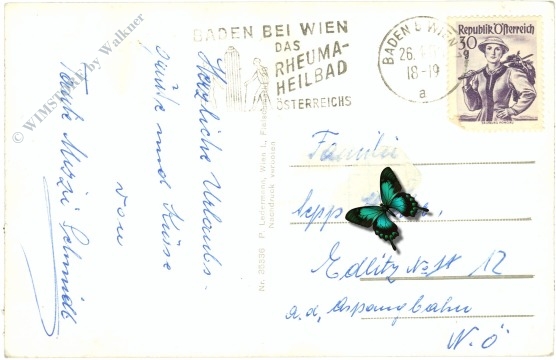 BADEN BEI WIEN
DAS
RHEUMA-
HEILBAD
ÖSTERREICHS
BADEN B. WIEN
26.
18-19
a
Republik Österreich
30
© WIMSTORE by Walkner
Herzliche Urlaubs-
grüße und Küsse
von
Tante Mizzi Schmidt
Nr. 25586 P. Ledermann, Wien I., Fleischmarkt
Nachdruck verboten
Familie
Sepp
Edlitz No 12
a.d. Aspangbahn
N.Ö